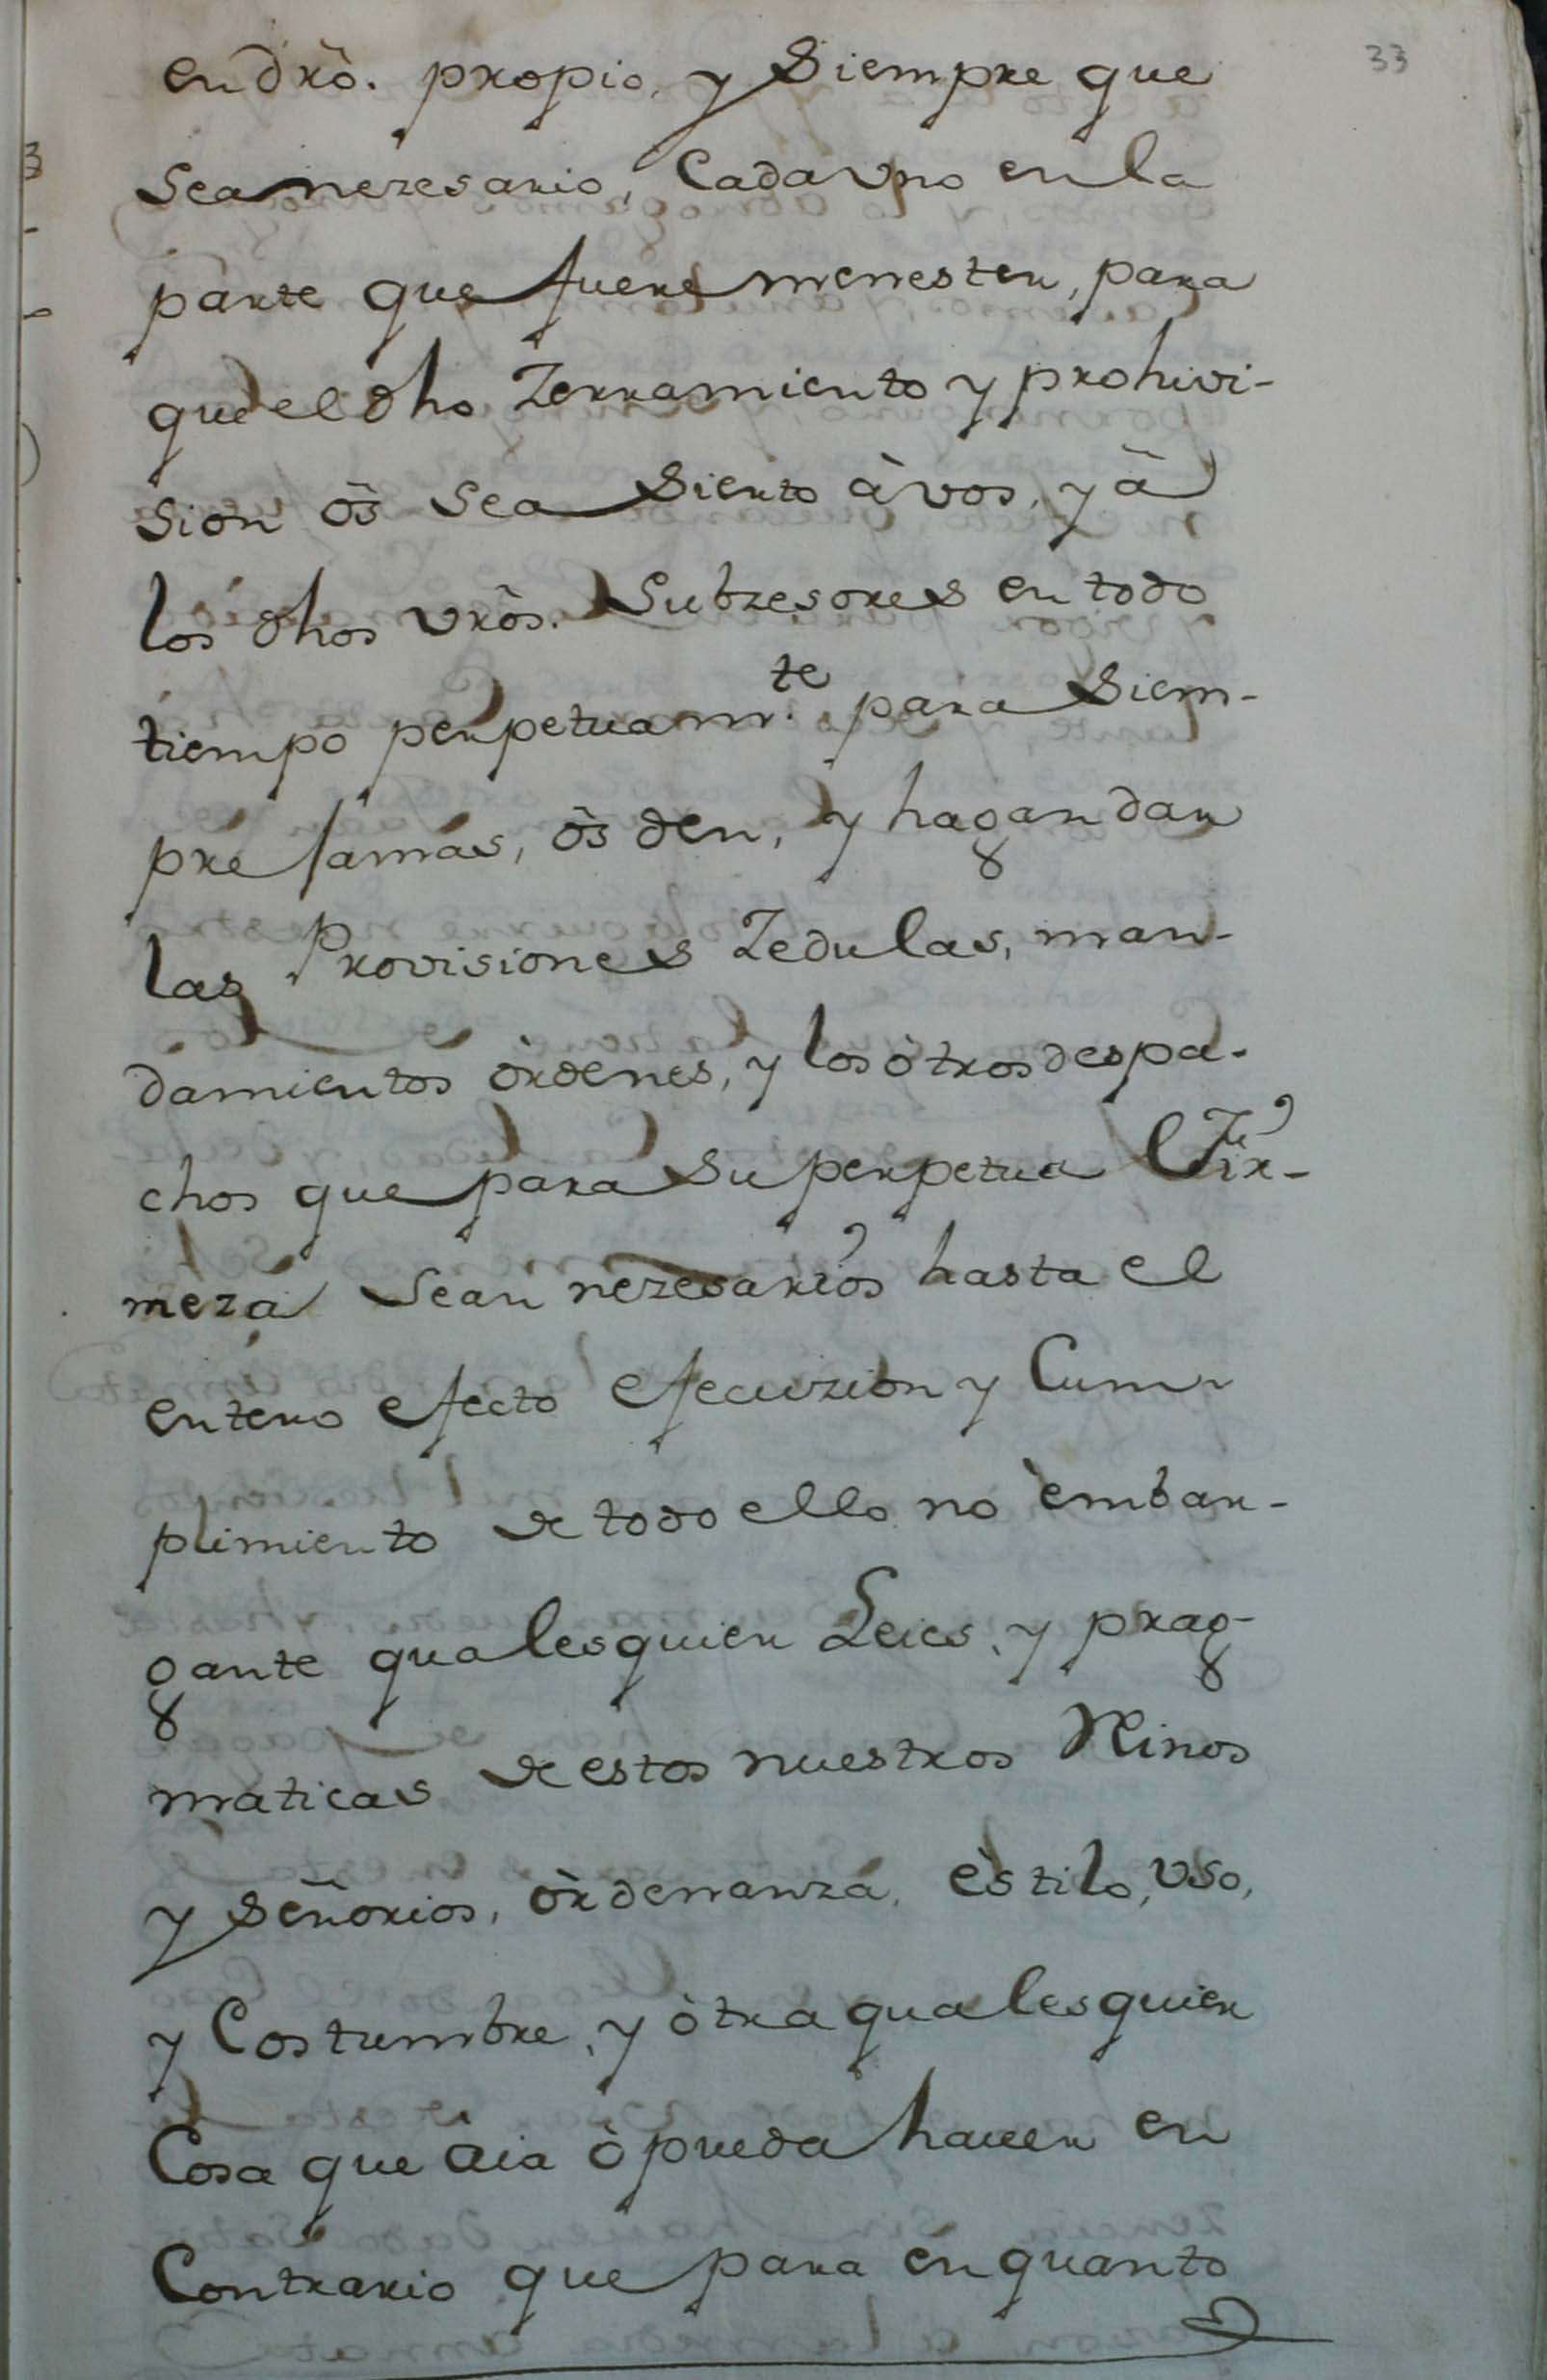 33
en dr̃o. propio, y Siempre que
sea nezesario, Cada vno en la
parte que fuere menester, para
que el dho Zerramiento y prohivi-
sion òs sea Sierto à vos, y à
los dhos vr̃os. Subzesores en todo
tiempo perpetuam.te para Siem-
pre Jamás, òs den, y hagan dar
las Provisiones Zedulas, man-
damientos òrdenes, y los òtros despa-
chos que para su perpetua Fir-
meza sean nezesarios hasta el
entero efecto efecuzion y Cum-
plimiento de todo ello no embar-
gante qualesquier Leies, y prag-
maticas de estos nuestros Rinos
y señorios, òrdenanza, èstilo, vso,
y Costumbre, y òtra qualesquier
Cosa que àia ò pueda hauer en
Contrario que para en quanto